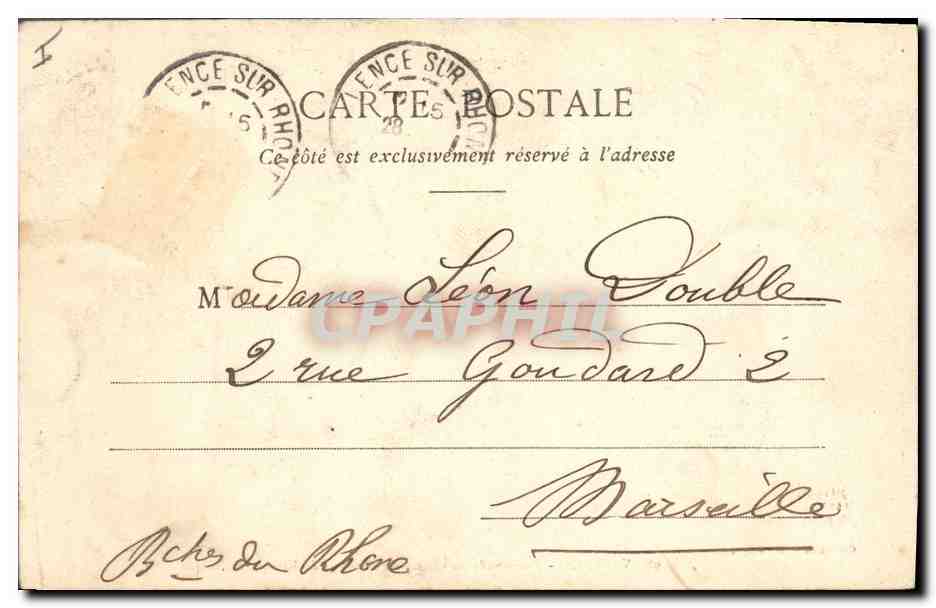 ENCE SUR RHONE
LENCE SUR RHON
28
CARTE POSTALE
Ce côté est exclusivement réservé à l'adresse
Madame Léon Double
CPAPHIL
2 rue Goudard 2
Marseille
Bches du Rhone